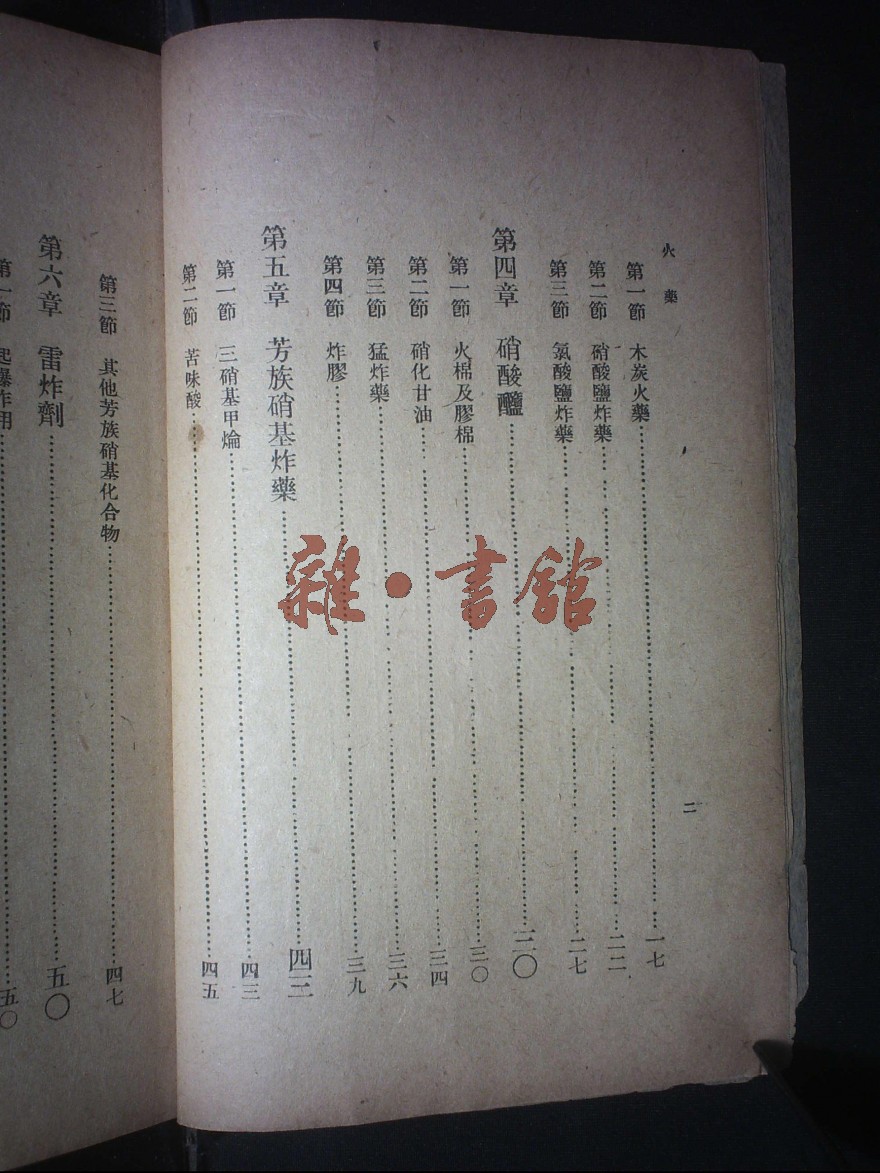 火藥
第一節 木炭火藥 一七
第二節 硝酸鹽炸藥 二二
第三節 氯酸鹽炸藥 二七
第四章 硝酸𨣧 三〇
第一節 火棉及膠棉 三〇
第二節 硝化甘油 三四
第三節 猛炸藥 三六
第四節 炸膠 三九
第五章 芳族硝基炸藥 四三
第一節 三硝基甲爚 四三
第二節 苦味酸 四五
第三節 其他芳族硝基化合物 四七
第六章 雷炸劑 五〇
第一節 起爆作用 五〇
二
雜·書館